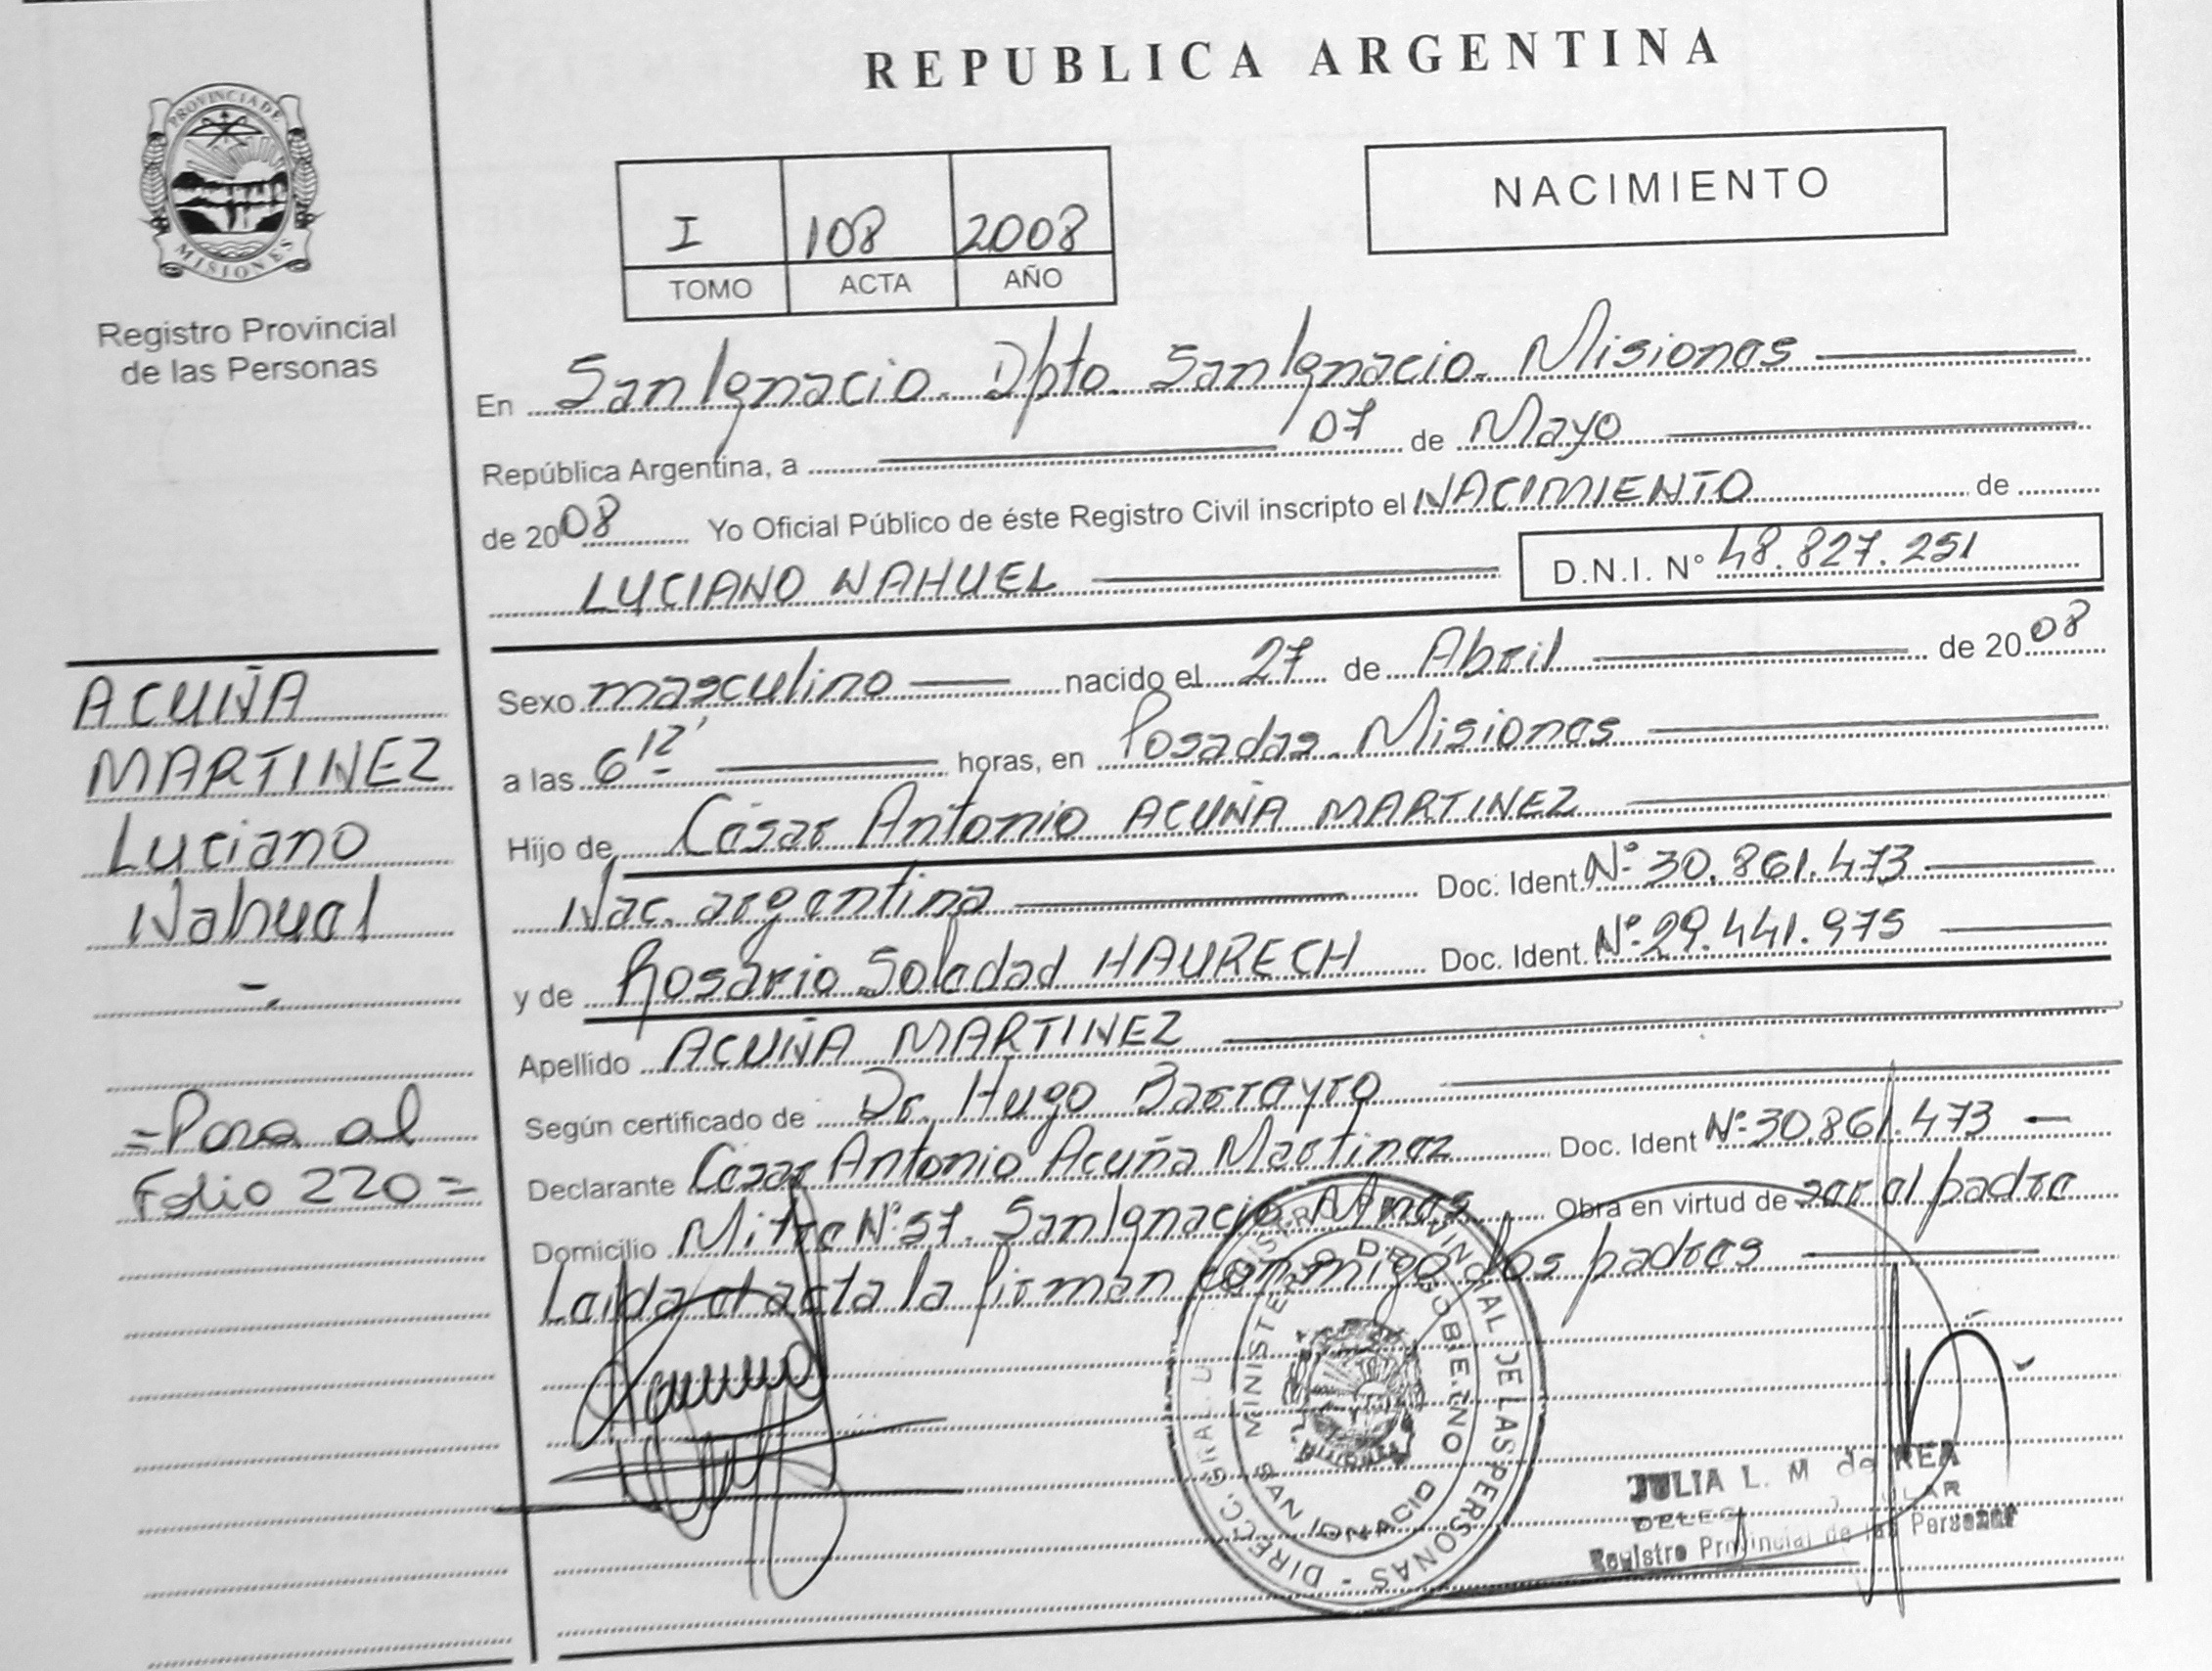 REPUBLICA ARGENTINA
PROVINCIA DE
MISIONES
Registro Provincial
de las Personas
I 108 2008
TOMO ACTA AÑO
NACIMIENTO
En San Ignacio. Dpto. San Ignacio. Misiones
República Argentina, a 07 de Mayo
de 2008 Yo Oficial Público de éste Registro Civil inscripto el NACIMIENTO de
LUCIANO NAHUEL D.N.I. N° 48.827.251
Sexo masculino nacido el 27 de Abril de 2008
a las 6 12' horas, en Posadas. Misiones
Hijo de César Antonio ACUÑA MARTINEZ
Nac. argentina Doc. Ident. Nº 30.861.473
y de Rosario Soledad HAURECH Doc. Ident. Nº 29.441.975
Apellido ACUÑA MARTINEZ
Según certificado de Dr. Hugo Barrayro
Declarante César Antonio Acuña Martinez Doc. Ident Nº 30.861.473
Domicilio Mitre Nº 57. San Ignacio Mnes Obra en virtud de ser el padre
Leida el acta la firman conmigo los padres
ACUÑA
MARTINEZ
Luciano
Nahuel
=Pasa al
Folio 220=
DIRECC. GRAL. REGISTR PROVINCIAL DE LAS PERSONAS -
MINISTERIO DE GOBIERNO
SAN IGNACIO
JULIA L. M de REA
Registro Provincial de las Personas